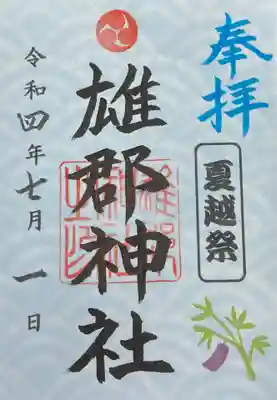 奉拝
夏越祭
雄郡神社
令和四年七月一日